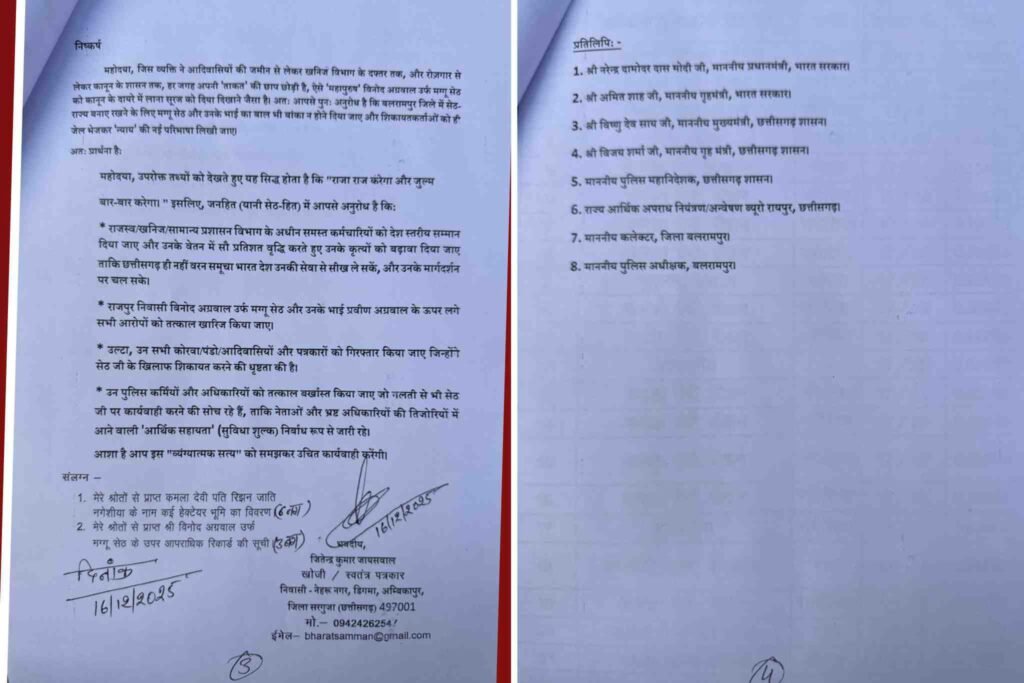 निष्कर्ष
महोदया, जिस व्यक्ति ने आदिवासियों की जमीन से लेकर खनिज विभाग के दफ्तर तक, और रोज़गार से
लेकर कानून के शासन तक, हर जगह अपनी 'ताकत' की छाप छोड़ी है, ऐसे 'महापुरुष' विनोद अग्रवाल उर्फ मग्गू सेठ
को कानून के दायरे में लाना सूरज को दिया दिखाने जैसा है। अतः आपसे पुनः अनुरोध है कि बलरामपुर जिले में सेठ-
राज्य बनाए रखने के लिए मग्गू सेठ और उनके भाई का बाल भी बांका न होने दिया जाए और शिकायतकर्ताओं को ही
जेल भेजकर 'न्याय' की नई परिभाषा लिखी जाए।
अतः प्रार्थना है:
महोदया, उपरोक्त तथ्यों को देखते हुए यह सिद्ध होता है कि "राजा राज करेगा और जुल्म
बार-बार करेगा। " इसलिए, जनहित (यानी सेठ-हित) में आपसे अनुरोध है कि:
* राजस्व/खनिज/सामान्य प्रशासन विभाग के अधीन समस्त कर्मचारियों को देश स्तरीय सम्मान
दिया जाए और उनके वेतन में सौ प्रतिशत वृद्धि करते हुए उनके कृत्यों को बढ़ावा दिया जाए
ताकि छत्तीसगढ़ ही नहीं वरन समूचा भारत देश उनकी सेवा से सीख ले सकें, और उनके मार्गदर्शन
पर चल सके।
* राजपुर निवासी विनोद अग्रवाल उर्फ मग्गू सेठ और उनके भाई प्रवीण अग्रवाल के ऊपर लगे
सभी आरोपों को तत्काल खारिज किया जाए।
* उल्टा, उन सभी कोरवा/पंडो/आदिवासियों और पत्रकारों को गिरफ्तार किया जाए जिन्होंने
सेठ जी के खिलाफ शिकायत करने की धृष्टता की है।
* उन पुलिस कर्मियों और अधिकारियों को तत्काल बर्खास्त किया जाए जो गलती से भी सेठ
जी पर कार्यवाही करने की सोच रहे हैं, ताकि नेताओं और भ्रष्ट अधिकारियों की तिजोरियों में
आने वाली 'आर्थिक सहायता' (सुविधा शुल्क) निर्बाध रूप से जारी रहे।
आशा है आप इस "व्यंग्यात्मक सत्य" को समझकर उचित कार्यवाही करेंगी।
संलग्न –
1. मेरे श्रोतों से प्राप्त कमला देवी पति रिझन जाति
नगेशीया के नाम कई हेक्टेयर भूमि का विवरण
2. मेरे श्रोतों से प्राप्त श्री विनोद अग्रवाल उर्फ
मग्गू सेठ के उपर आपराधिक रिकार्ड की सूची
16/12/2025
भवदीय,
दिनांक
16/12/2025
जितेन्द्र कुमार जायसवाल
खोजी / स्वतंत्र पत्रकार
निवासी - नेहरू नगर, डिगमा, अम्बिकापुर,
जिला सरगुजा (छत्तीसगढ़) 497001
मो.–
ईमेल– bharatsamman@gmail.com
3
प्रतिलिपिः -
1. श्री नरेन्द्र दामोदर दास मोदी जी, माननीय प्रधानमंत्री, भारत सरकार।
2. श्री अमित शाह जी, माननीय गृहमंत्री, भारत सरकार.
3. श्री विष्णु देव साय जी, माननीय मुख्यमंत्री, छत्तीसगढ़ शासन।
4. श्री विजय शर्मा जी, माननीय गृह मंत्री, छत्तीसगढ़ शासन।
5. माननीय पुलिस महानिदेशक, छत्तीसगढ़ शासन।
6. राज्य आर्थिक अपराध नियंत्रण/अन्वेषण ब्यूरो रायपुर, छत्तीसगढ़।
7. माननीय कलेक्टर, जिला बलरामपुर।
8. माननीय पुलिस अधीक्षक, बलरामपुर।
4